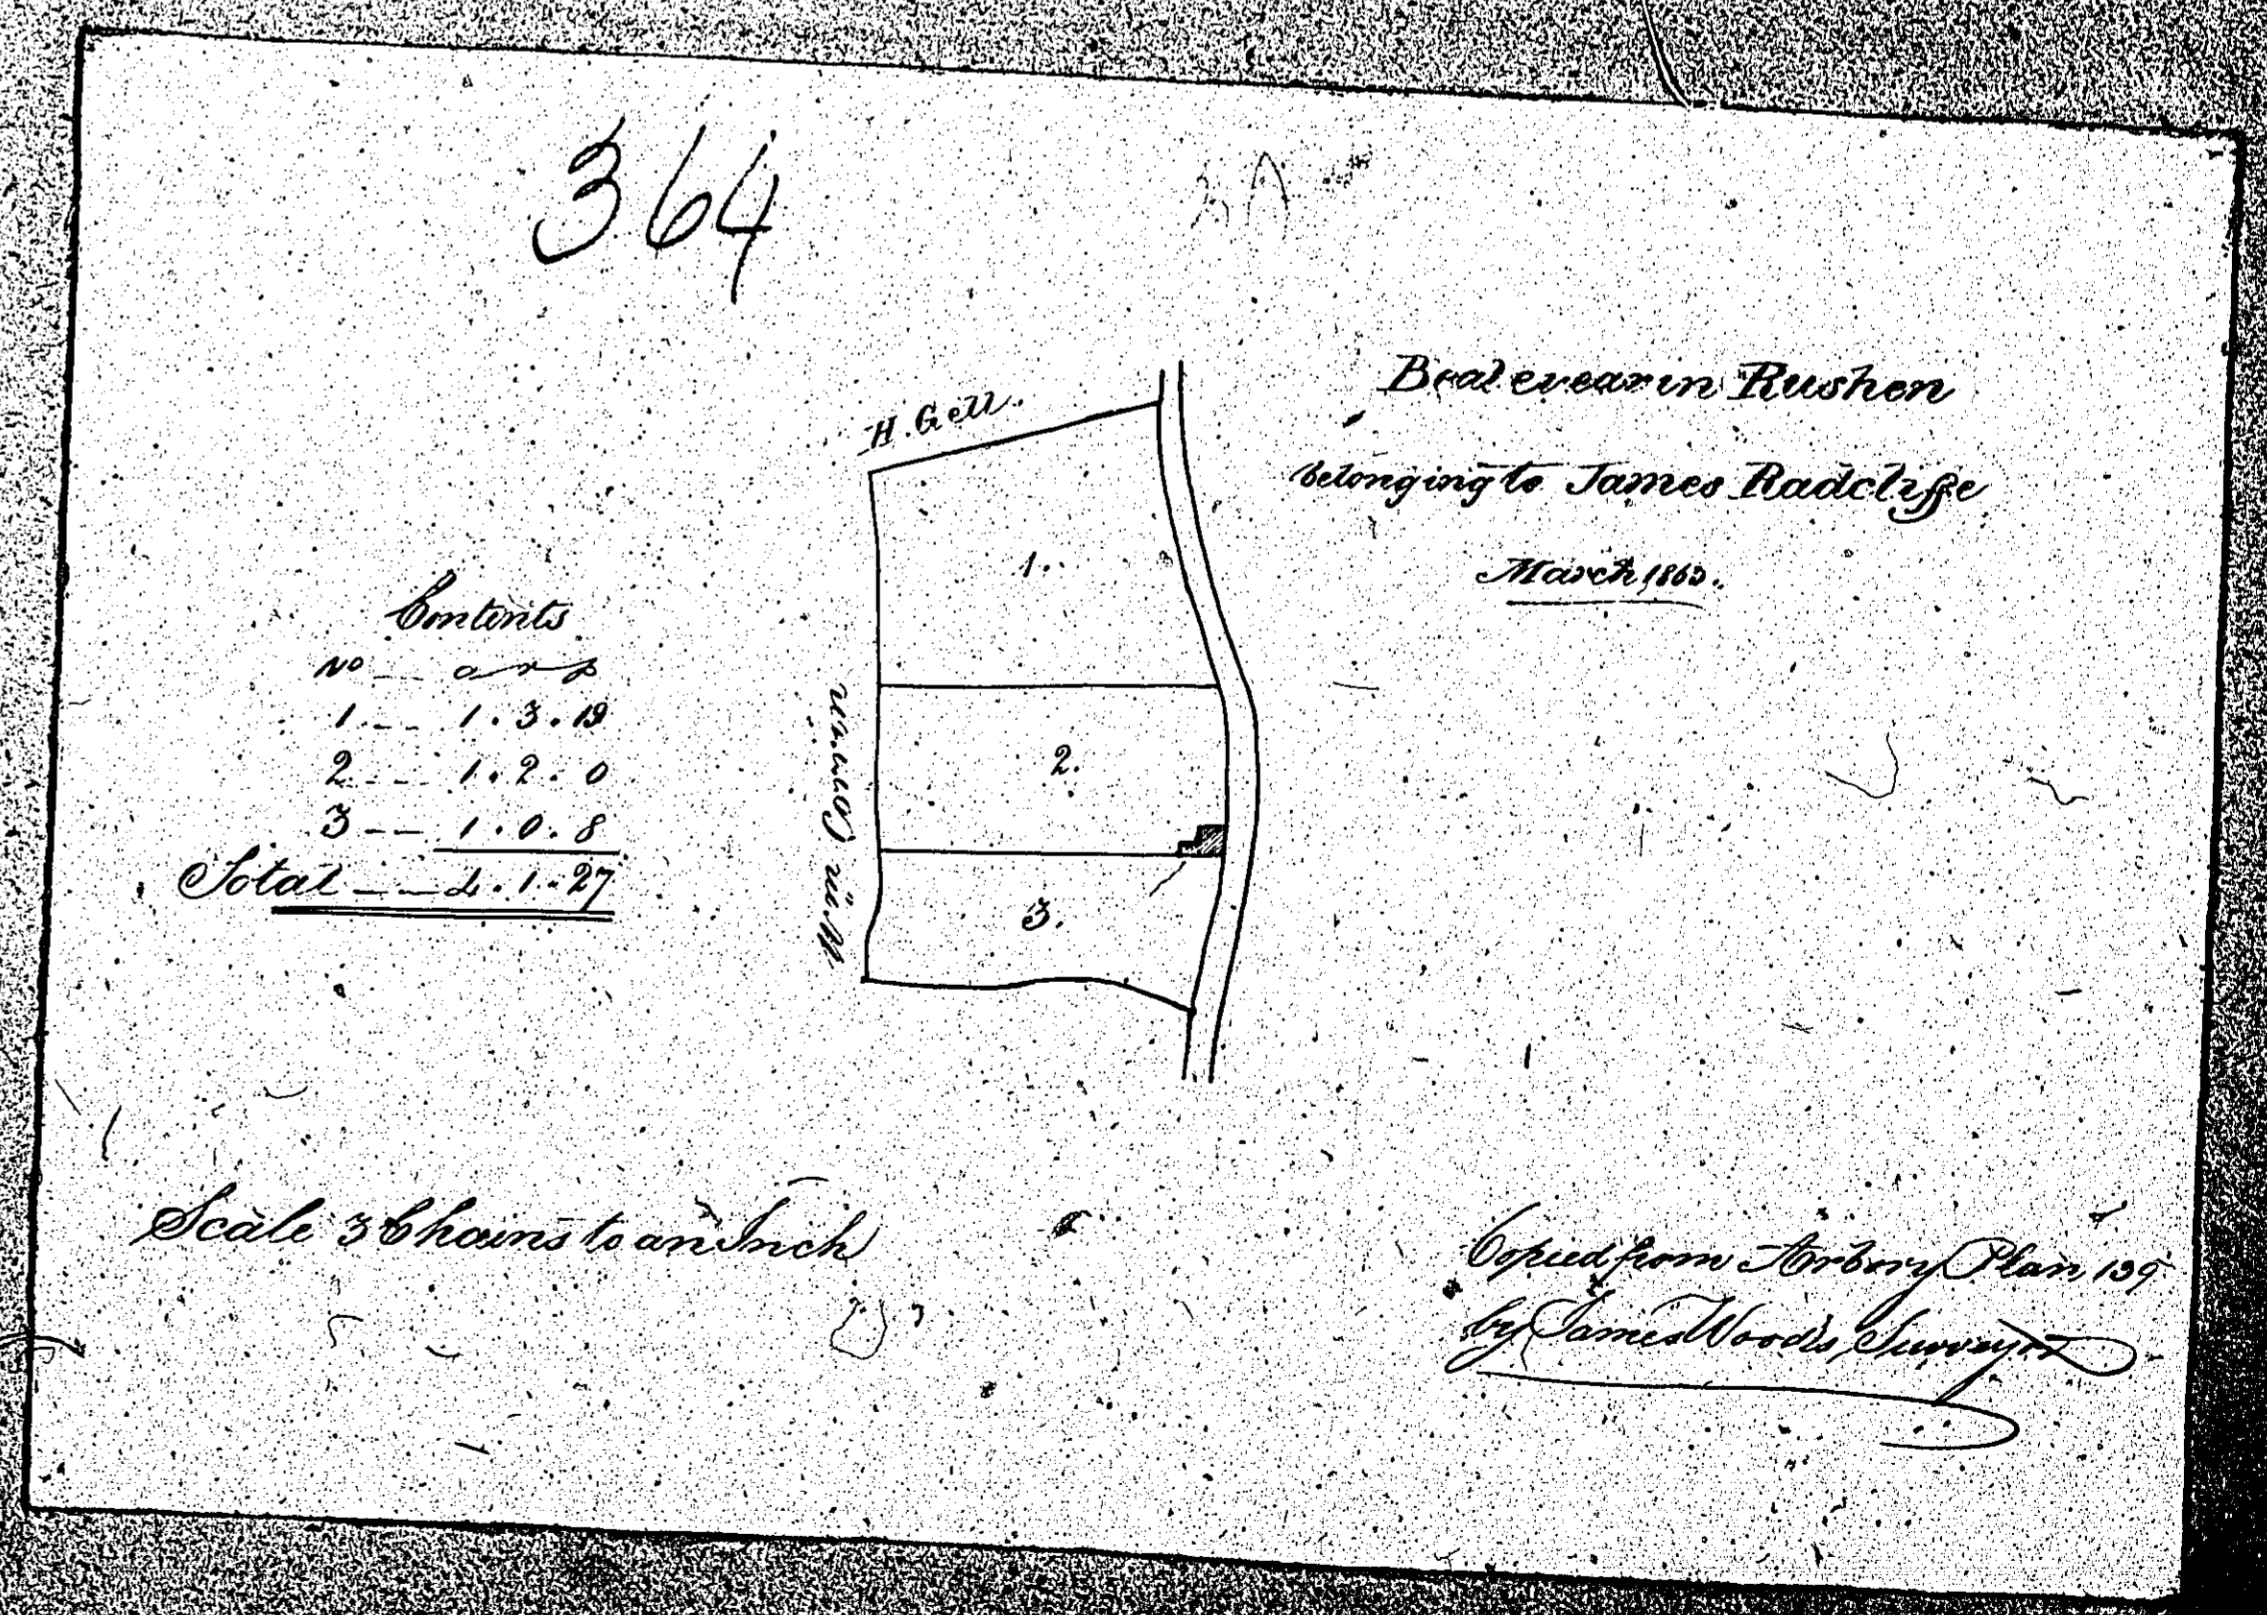 364
Bealevear in Rushen
belonging to James Radcliffe
March 1863.
H. Gell.
Contents
No -- a r p
1 -- 1 . 3 . 19
2 -- 1 . 2 . 0
3 -- 1 . 0 . 8
Total -- 4 . 1 . 27
1.
2.
3.
Scale 3 Chains to an Inch
Copied from Arbory Plan 139
by James Woods, Surveyor